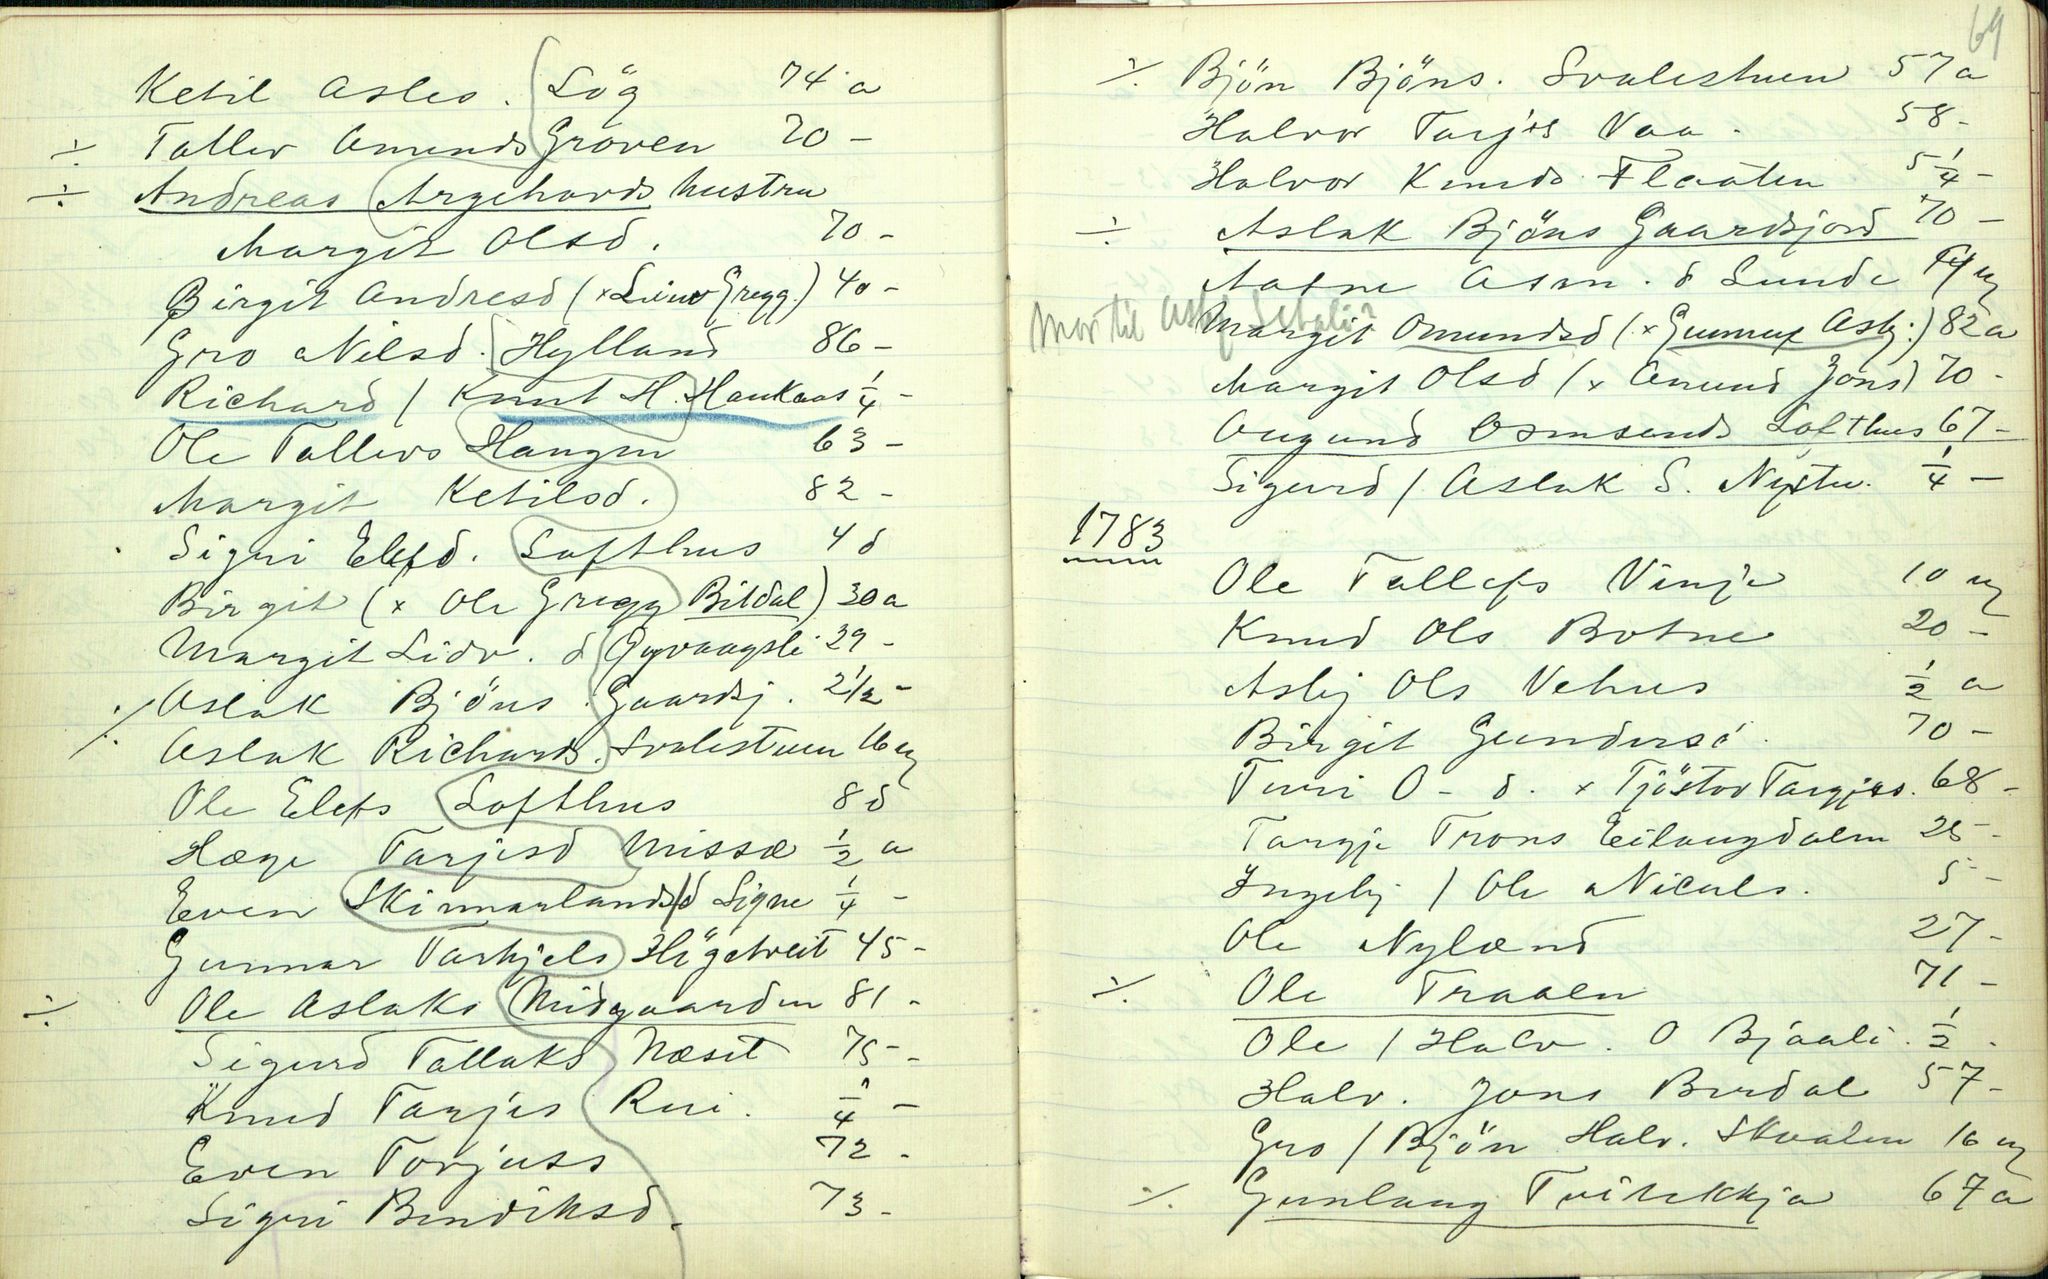 Ketil Asles. Lög 74 a
÷ Tallev Amunds Groven 20 -
÷ Andreas Argehovds hustru
Margit Olsd. 70 -
Birgit Andresd (× Gregg.) 40 -
Gro Nilsd. Hylland 86 -
Richard / Knut H. Haukaas 1/4 -
Ole Tallevs Haugen 63 -
Margit Ketilsd. 82 -
Sigri Elefsd. Lofthus 4 d
Birgit (× Ole Gregg Bitdal) 30 a
Margit Lidv. d Öyvaagsli 29 -
Aslak Bjöns Gaardsj. 2 1/2 -
÷ Aslak Richards. Svalestuen 16 u
Ole Elefs Lofthus 8 d
Hæge Tarjesd Missæ 1/2 a
Even Skinnarlands / d Signe 1/4 -
Gunnar Tarkjels Högetveit 45 -
÷ Ole Aslaks Midgaarden 81 -
Sigurd Tallaks Næset 75 -
Knud Tarjes Rui. 1/4 -
Even Torjuss 72 -
Sigri Bendiksd. 73 -
69
÷ Bjön Bjöns. Svalestuen 57 a
Halvor Tarjes Vaa. 58 -
Halvor Knuds Flaaten 5 1/4 -
÷ Aslak Bjöns Gaardsjord 70 -
Aasne Asm. d Lunde u
Mor til
Margit Omundsd (× Gunnuf Asbj.) 82 a
Margit Olsd (× Amund Jons) 70 -
Augund Osmunds Lofthus 67 -
Sigurd / Aslak S. Nystu. 1/4 -
1783
Ole Tallefs Vinje 10 u
Knud Ols Botne 20 -
Asbj Ols Vehus 1/2 a
Birgit Gundersd. 70 -
Turi O - d. × Tjöstov Targjes. 68 -
Targje Trons Eilaugdalen 25 -
Ingebj / Ole Niculs. 5 -
Ole Nyland 27 -
÷ Ole Traaen 71 -
Ole / Halv. O Bjaali. 1/2 -
Halv. Jons Burdal 57 -
Gro / Bjön Halv. Skvalen 16 u
÷ Gunlaug Tveitekkja 67 a